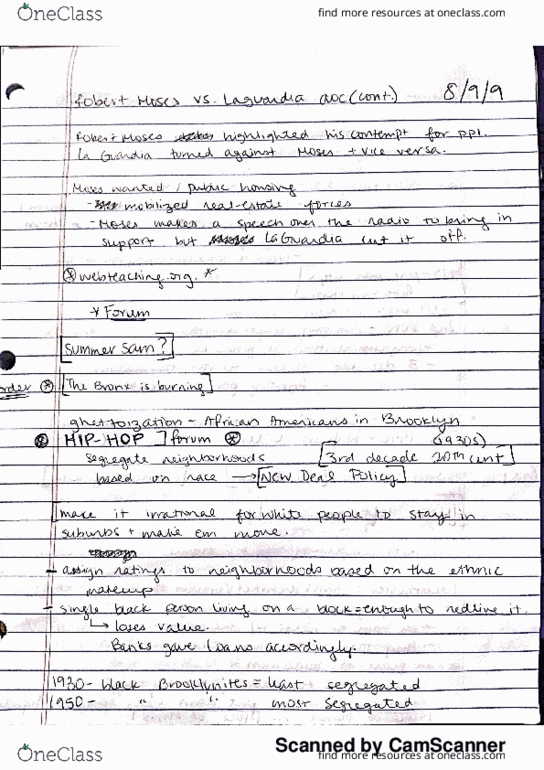 OneClass
find more resources at oneclass.com
Robert Moses vs. Laguardia doc(cont.) 8/9/9
Robert Moses highlighted his contempt for ppl.
La Guardia turned against Moses + vice versa.
Moses wanted public housing
- mobilized real-estate forces
- Moses makes a speech over the radio to bring in
support but LaGuardia cut it off.
* webteaching.org. *
* Forum
[Summer Sam?]
order * [The Bronx is burning]
ghettoization - African Americans in Brooklyn
* HIP-HOP ] forum * (1930s)
segregate neighborhoods [3rd decade 20th cent]
based on race → [New Deal Policy]
make it irrational for white people to stay in
suburbs + make em move.
- assign ratings to neighborhoods based on the ethnic
makeup
- single black person living on a block = enough to redline it.
↳ loses value.
Banks gave loans accordingly.
1930 - black Brooklynites = least segregated
1950 - " " most segregated
Scanned by CamScanner
OneClass
find more resources at oneclass.com